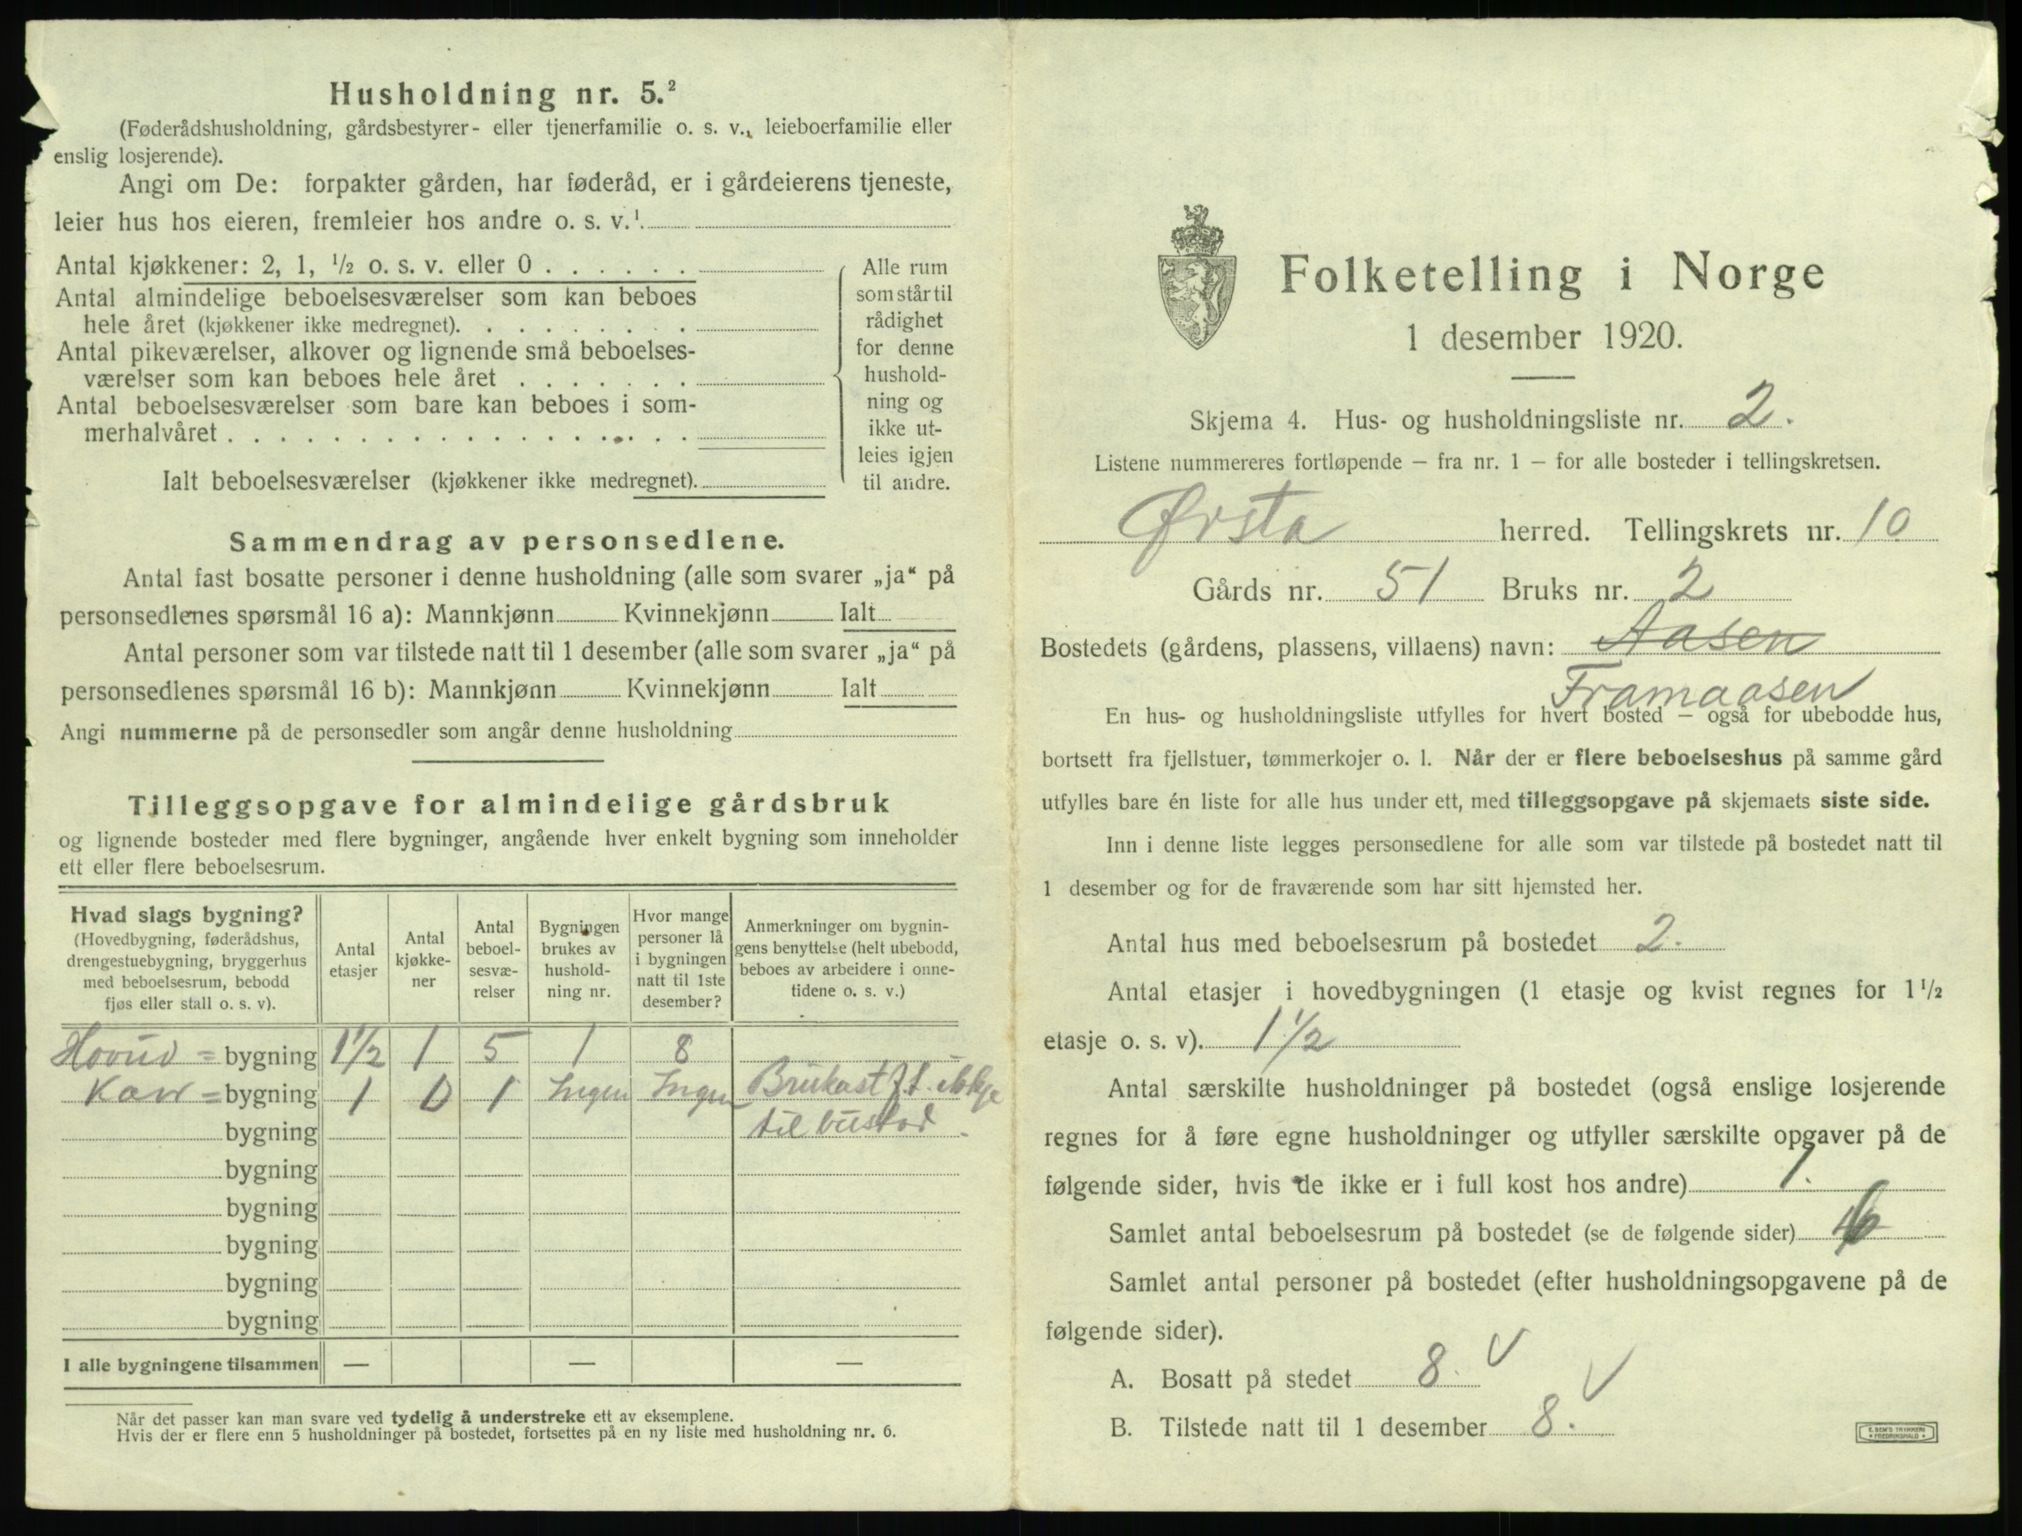 Husholdning nr. 5.²
(Føderådshusholdning, gårdsbestyrer- eller tjenerfamilie o. s. v., leieboerfamilie eller
enslig losjerende).
Angi om De: forpakter gården, har føderåd, er i gårdeierens tjeneste,
leier hus hos eieren, fremleier hos andre o. s. v.¹
Antal kjøkkener: 2, 1, ½ o. s. v. eller 0 . . . . . .
Antal almindelige beboelsesværelser som kan beboes
hele året (kjøkkener ikke medregnet). . . . . . . . .
Antal pikeværelser, alkover og lignende små beboelses-
værelser som kan beboes hele året . . . . . . .
Antal beboelsesværelser som bare kan beboes i som-
merhalvåret . . . . . . . . . . . . . . . . . .
Ialt beboelsesværelser (kjøkkener ikke medregnet).
Alle rum
som står til
rådighet
for denne
hushold-
ning og
ikke ut-
leies igjen
til andre.
Sammendrag av personsedlene.
Antal fast bosatte personer i denne husholdning (alle som svarer „ja“ på
personsedlenes spørsmål 16 a): Mannkjønn Kvinnekjønn Ialt
Antal personer som var tilstede natt til 1 desember (alle som svarer „ja“ på
personsedlenes spørsmål 16 b): Mannkjønn Kvinnekjønn Ialt
Angi nummerne på de personsedler som angår denne husholdning
Tilleggsopgave for almindelige gårdsbruk
og lignende bosteder med flere bygninger, angående hver enkelt bygning som inneholder
ett eller flere beboelsesrum.
Hvad slags bygning?
(Hovedbygning, føderådshus,
drengestuebygning, bryggerhus
med beboelsesrum, bebodd
fjøs eller stall o. s. v).
Antal
etasjer
Antal
kjøkke-
ner
Antal
beboel-
sesvæ-
relser
Bygningen
brukes av
hushold-
ning nr.
Hvor mange
personer lå
i bygningen
natt til 1ste
desember?
Anmerkninger om bygnin-
gens benyttelse (helt ubebodd,
beboes av arbeidere i onne-
tidene o. s. v.)
Hovud = bygning 1½ 1 5 1 8
= bygning 1 0 1 Ingen Ingen Brukast f. t. ikkje
bygning til bustad.
bygning
bygning
bygning
bygning
bygning
I alle bygningene tilsammen — — —
Når det passer kan man svare ved tydelig å understreke ett av eksemplene.
Hvis der er flere enn 5 husholdninger på bostedet, fortsettes på en ny liste med husholdning nr. 6.
Folketelling i Norge
1 desember 1920.
Skjema 4. Hus- og husholdningsliste nr. 2.
Listene nummereres fortløpende — fra nr. 1 — for alle bosteder i tellingskretsen.
Ørsta herred. Tellingskrets nr. 10
Gårds nr. 51 Bruks nr. 2
Bostedets (gårdens, plassens, villaens) navn: Aasen
Framaasen
En hus- og husholdningsliste utfylles for hvert bosted — også for ubebodde hus,
bortsett fra fjellstuer, tømmerkojer o. l. Når der er flere beboelseshus på samme gård
utfylles bare én liste for alle hus under ett, med tilleggsopgave på skjemaets siste side.
Inn i denne liste legges personsedlene for alle som var tilstede på bostedet natt til
1 desember og for de fraværende som har sitt hjemsted her.
Antal hus med beboelsesrum på bostedet 2.
Antal etasjer i hovedbygningen (1 etasje og kvist regnes for 1½
etasje o. s. v). 1½
Antal særskilte husholdninger på bostedet (også enslige losjerende
regnes for å føre egne husholdninger og utfyller særskilte opgaver på de
følgende sider, hvis de ikke er i full kost hos andre) 1.
Samlet antal beboelsesrum på bostedet (se de følgende sider) 6
Samlet antal personer på bostedet (efter husholdningsopgavene på de
følgende sider).
A. Bosatt på stedet 8. V
B. Tilstede natt til 1 desember 8. V
E. SEM'S TRYKKERI
FREDRIKSHALD